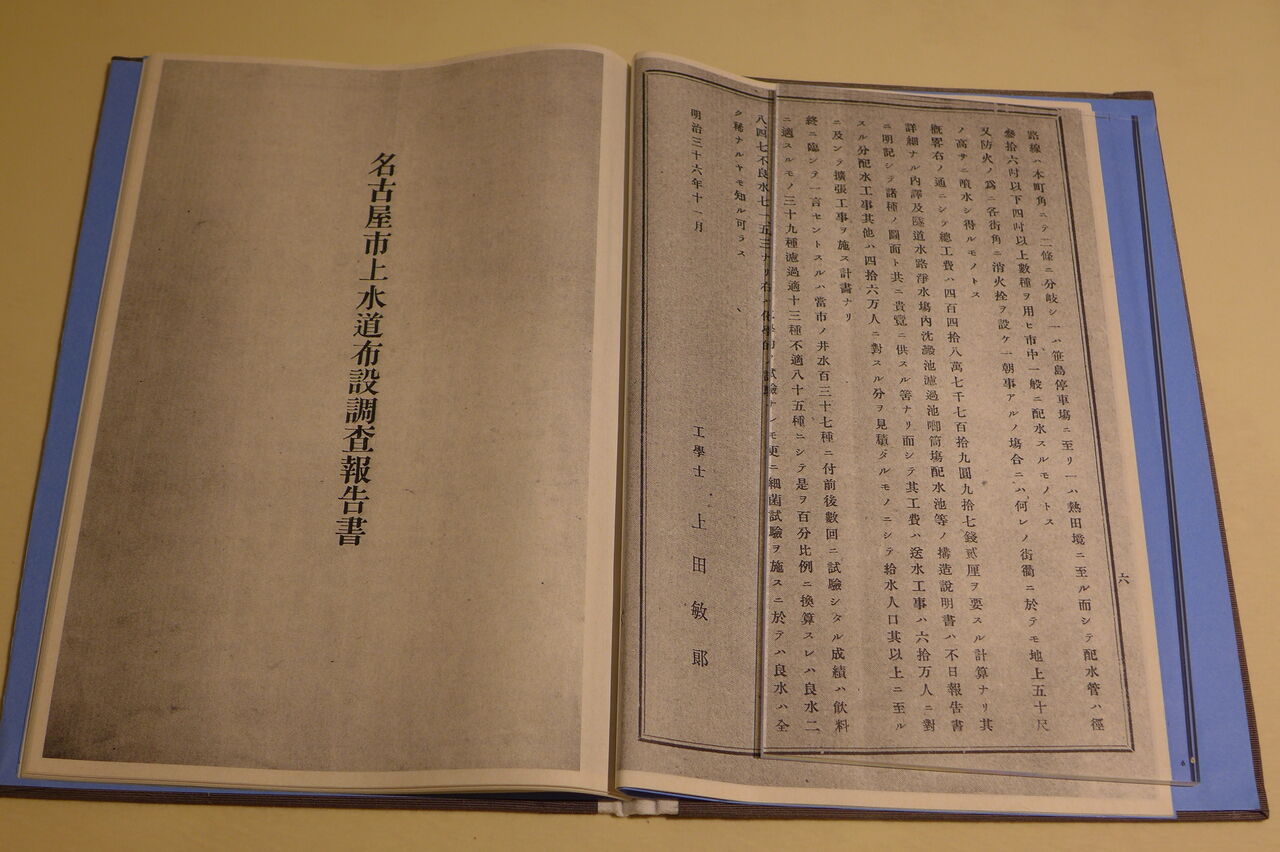 六
路線ハ本町角ニテ二條ニ分岐シ一ハ笹島停車塲ニ至リ一ハ熱田境ニ至ル而シテ配水管ハ徑
參拾六吋以下四吋以上數種ヲ用ヒ市中一般ニ配水スルモノトス
又防火ノ爲ニ各街角ニ消火栓ヲ設ケ一朝事アルノ塲合ニハ何レノ街衢ニ於テモ地上五十尺
ノ高サニ噴水シ得ルモノトス
概畧右ノ通ニシテ總工費ハ四百四拾八萬七千七百拾九圓九拾七錢貳厘ヲ要スル計算ナリ其
詳細ナル內譯及隧道水路淨水塲內沈澱池濾過池喞筒塲配水池等ノ構造說明書ハ不日報告書
ニ明記シテ諸種ノ圖面ト共ニ貴覽ニ供スル筈ナリ而シテ其工費ハ送水工事ハ六拾万人ニ對
スル分配水工事其他ハ四拾六万人ニ對スル分ヲ見積タルモノニシテ給水人口其以上ニ至ル
ニ及ンテ擴張工事ヲ施ス計畫ナリ
終ニ臨ンテ一言セントスルハ當市ノ井水百三十七種ニ付前後數回ニ試驗シタル成績ハ飮料
ニ適スルモノ三十九種濾過適十三種不適八十五種ニシテ是ヲ百分比例ニ換算スレハ良水二
八四七不良水七一、五三ナリ右ハ試驗ナレモ更ニ細菌試驗ヲ施スニ於テハ良水ハ全
ク稀ナルヤモ知ル可ラス、
明治三十六年十一月
工學士 上田敏郎
名古屋市上水道布設調査報告書